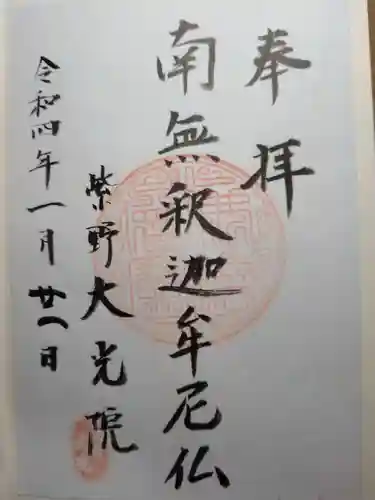 奉拝
南無釈迦牟尼仏
紫野大光院
令和四年一月廿八日